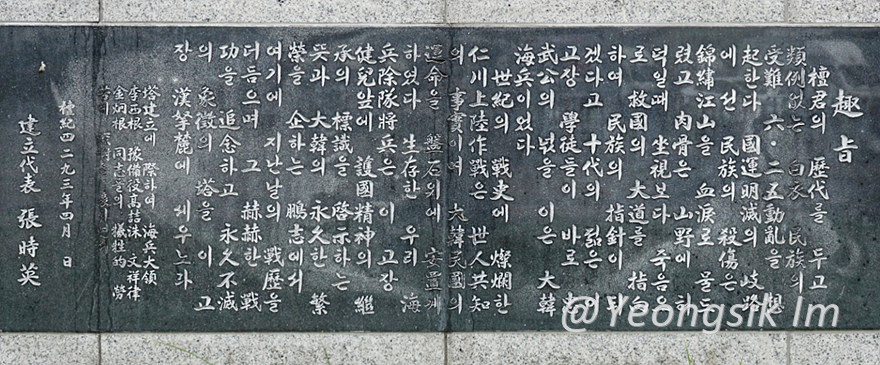 趣旨
檀君의 歷代를 두고
類例없는 白衣民族의
受難 六·二五動亂을 想
起한다 國運明滅의 岐路
에 선 民族의 殺傷은
錦繡江山을 血淚로 물드
렸고 肉骨은 山野에 허
덕일때 坐視보다 죽음으
로 救國의 大道를 指向
하여 民族의 指針이 되
겠다고 十代의 젊은 이
고장 學徒들이 바로 忠
武公의 넋을 이은 大韓
海兵이었다
世紀의 戰史에 燦爛한
仁川上陸作戰은 世人共知
의 事實이여 大韓民國의
運命을 盤石위에 安置케
하였다 生存한 우리 海
兵除隊將兵은 이 고장
健兒앞에 護國精神의 繼
承의 標識을 啓示하는
뜻과 大韓의 永久한 繁
榮을 企하는 鵬志에서
여기에 지난날의 戰歷을
더듬으며 그 赫赫한 戰
功을 追念하고 永久不滅
의 象徵의 塔을 이 고
장 漢拏麓에 세우노라
塔建立에 際하여 海兵大領
李西根 豫備役高誥洙 文祥律
金炯根 同志들의 犧牲的 勞
檀紀四二九三年四月 日
建立代表 張時英
@Yeongsik Im